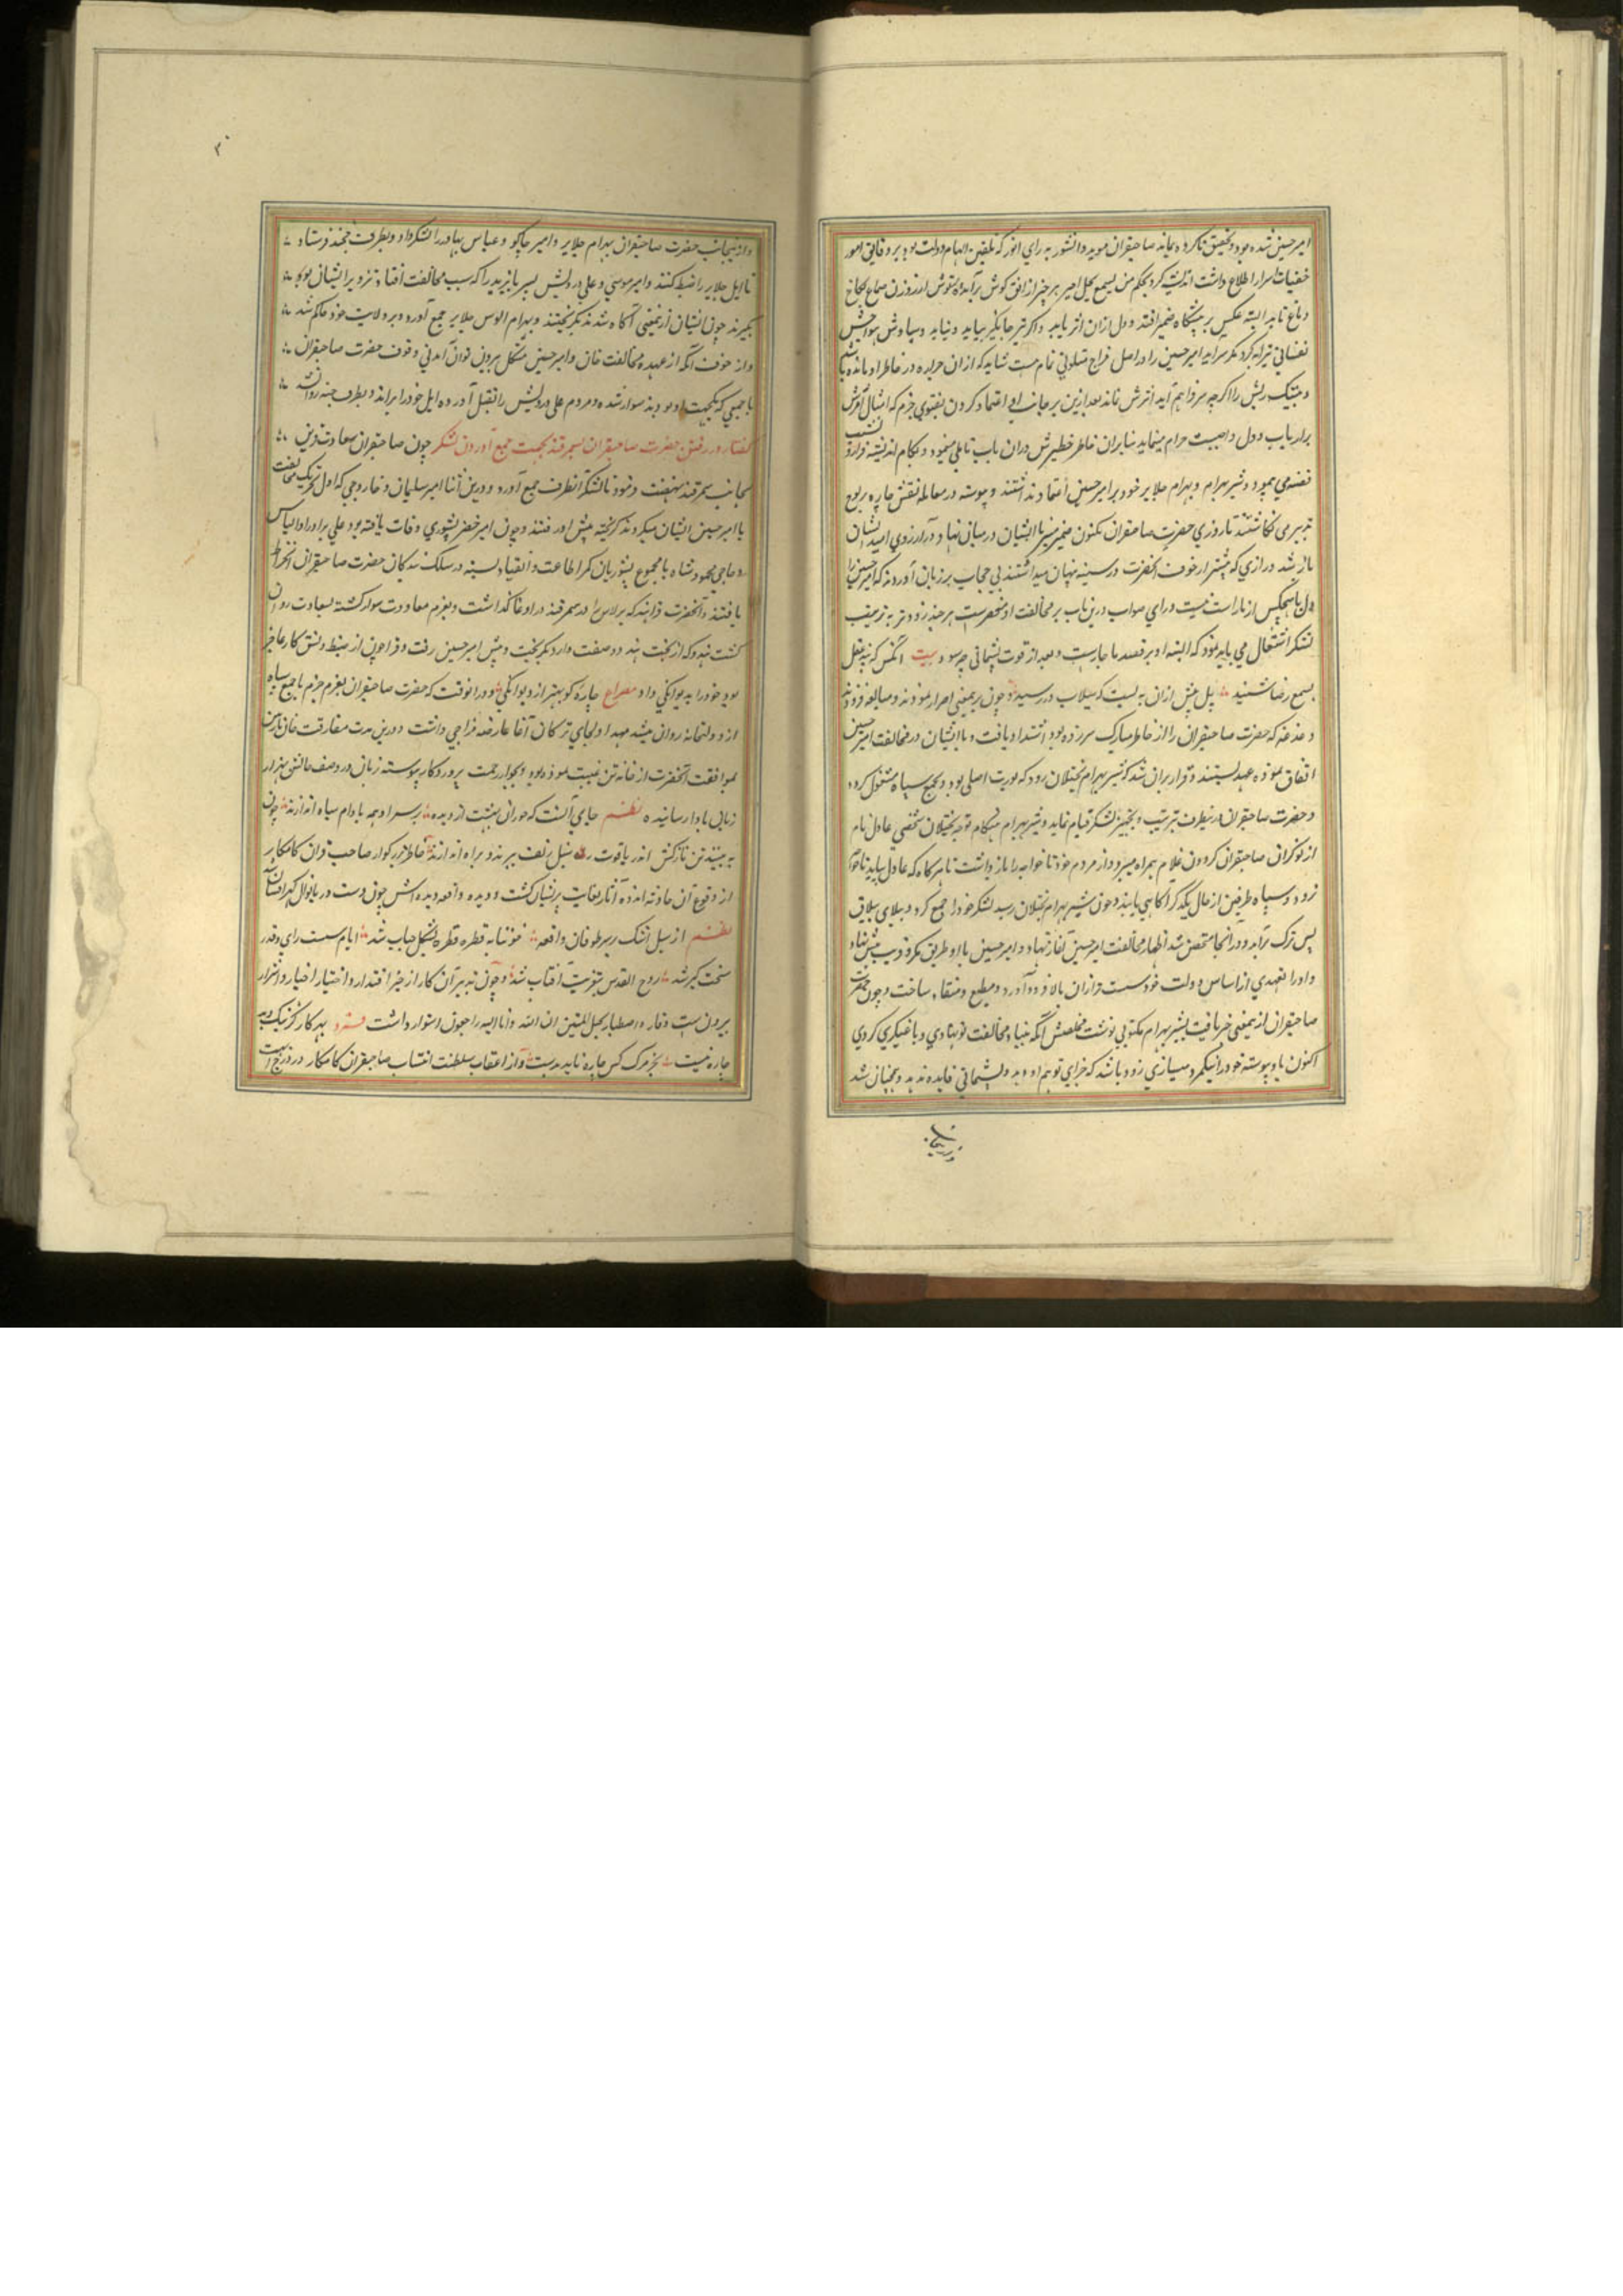 امیر حسین شده بود و تحقیق ناکرده بماند صاحبقران موید دانشور به رای انور که بتلقین الهام دولت بود بر دقایق امور
خفیات اسرار اطلاع داشت اندیشه کرد بحکم من یسمع یخل امیر هر چیز از افق کوش برآید و از روزن صماخ بکاخ
دماغ تابد البته عکس بر پیشگاه ضمیر افتد و دل ازان اثر یابد و اکر تیر جایگیر بیاید و نیاید وساوس هواجس
نفسانی تیرانه کرد مکر سرایه امیر حسین را در اصل مزاج تمام هست شاید که ازان در خاطر او مانده باشد
ریش را اکرچه سر فراهم آید اثرش نماند بعد ازین بر جانب او اعتماد کردن بفتوی حزم که امثال
برارباب دول واجبست حرام مینماید بنابران خاطر خطیرش دران باب تاملی مینمود و بکام اندیشه فراز و نشیب
قضیه می پیمود و شیر بهرام و بهرام جلایر خود بر امیر حسین اعتماد نداشتند و پیوسته در معامله نقش چاره بر لوح
تدبیر می نگاشتند تا روزی حضرت صاحبقران مکنون ضمیر منیر با ایشان در میان نهاد و در آرزوی امید ایشان
باز شد و رازی که پیشتر از خوف آنحضرت در سینه پنهان میداشتند بی حجاب بر زبان آوردند که امیر حسین را
دل با هیچکس از ما راست نیست و رای صواب درین باب بر مخالفت او منحصرست هر چند زودتر به ترتیب
لشکر اشتغال می باید نمود که البته او بر قصد ما جازمست و بعد از فوت پشیمانی چه سود بیت آنکس که نه
بسمع رضا شنید پل پیش ازان به بست که سیلاب در رسید و چون برین معنی اصرار نمودند و مبالغه افزودند
دغدغه که حضرت صاحبقران را از خاطر مبارک سر زده بود اشتداد یافت و با ایشان در مخالفت امیر حسین
اتفاق نموده عهد بستند و قرار بران شد که شیر بهرام بختلان رود که یورت اصلی بود و بجمع سپاه مشغول کردد
و حضرت صاحبقران درینطرف بترتیب و تجهیز لشکر قیام نماید و شیر بهرام هنکام توجه بختلان شخصی عادل نام
از نوکران صاحبقران کردون غلام همراه میبرد و از مردم خود تا خواجه را باز داشت تا هرکاه که عادل بیاید
رود و سپاه طرفین از حال یکدکر آکاهی یابند و چون شیر بهرام بختلان رسید لشکر خود را جمع کرد و ببلای ییلاق
پس ترک برآمد و در آنجا متحصن شد اظهار مخالفت امیر حسین آغاز نهاد و امیر حسین با او طریق مکر و فریب پیش نهاد
و او را بعهدی از اساس دولت خود سست تر ازان بالا فرود آورد و مطیع و منقاد ساخت و چون حضرت
صاحبقران ازین معنی خبر یافت بشیر بهرام مکتوبی نوشت مخلصش آنکه بنیاد مخالفت تو نهادی و باغیکری کردی
اکنون باو پیوسته خود را نیکمرد میسازی زود باشد که جزای تو هم او دهد و پشیمانی فایده ندهد و همچنان شد
وازینجانب
۳۰
و ازینجانب حضرت صاحبقران بهرام جلایر و امیر جاکو و عباس بهادر را لشکر داد و بطرف خجند فرستاد
تا ایل جلایر را ضبط کنند و امیر موسی و علی درویش پسر بایزید را که سبب مخالفت افتاد و تزویر ایشان بود
بگیرند چون ایشان ازین معنی آکاه شدند بگریختند و بهرام الوس جلایر جمع آورد و بر ولایت خود حاکم شد
و از خوف آنکه از عهده مخالفت خان و امیر حسین مشکل بیرون توان آمدن بی وقوف حضرت صاحبقران
با جمعی که یکجهت او بودند سوار شده و مردم علی درویش را بقتل آورده ایل خود را براند و بطرف جته روانه شد
گفتار در رفتن حضرت صاحبقران بسمرقند بجهت جمع آوردن لشکر چون صاحبقران سعادت قرین
بجانب سمرقند نهضت فرمود تا لشکر آنطرف جمع آورد و درین اثنا امیر سلیمان و خاروجی که اول تحریک مخالفت
با امیر حسین ایشان میکردند کریخته پیش او رفتند و چون امیر خضر یسوری وفات یافته بود علی برادر او الیاس
و حاجی محمود شاه با مجموع یسوریان کمر اطاعت و انقیاد بسته در سلک بندکان حضرت صاحبقران انخراط
یافتند و آنحضرت قراهندکه برلاس را در سمرقند داروغا کذاشت و بعزم معاودت سوار کشته بسعادت روان
کشت هندوکه از بخت بد دو صفت وارد بکریخت و پیش امیر حسین رفت و قراجون از ضبط و نسق کار عاجز
بود خود را به دیوانکی داد مصراع چاره کو بهتر از دیوانکی و در انوقت که حضرت صاحبقران بعزم حزم با جمع سپاه
از دولتخانه روان میشد مهد اولجای ترکان آغا عارضه مزاجی داشت و درین مدت مفارقت
بموافقت آنحضرت از خانه تن غیبت نموده بود و بجوار رحمت پروردکار پیوسته زبان در وصف حالش هزار
زبانی بادا رسانیده نظم جای آنست که حوران بهشت از دیده بر سر او همه بادام سیاه اندازند چون
به بینند تن نازکش اندر یاقوت سنبل زلف ببرند و براه اندازند خاطر بزرکوار صاحب قران کامکار
از وقوع آن حادثه اندوه آثار بغایت پریشان کشت و دیده واقعه دیده اش چون دست دریا نوال کهر افشان شد
نظم از سیل اشک بر سر طوفان واقعه خونابه قطره قطره بشکل حباب شد ایام سست رای و قدر
سخت کیر شد روح القدس بتعزیت آفتاب شد و چون تدبیر آن کار از حیز اقتدار و اختیار اخیار و اشرار
بیرون است وقار و اصطبار بحبل المتین ان الله وانا الیه راجعون استوار داشت فرد بهر کار کزنیک و بد
چاره نیست بجز مرک کس چاره ناید بدست و از اعقاب سلطنت انتساب صاحبقران کامکار در درج